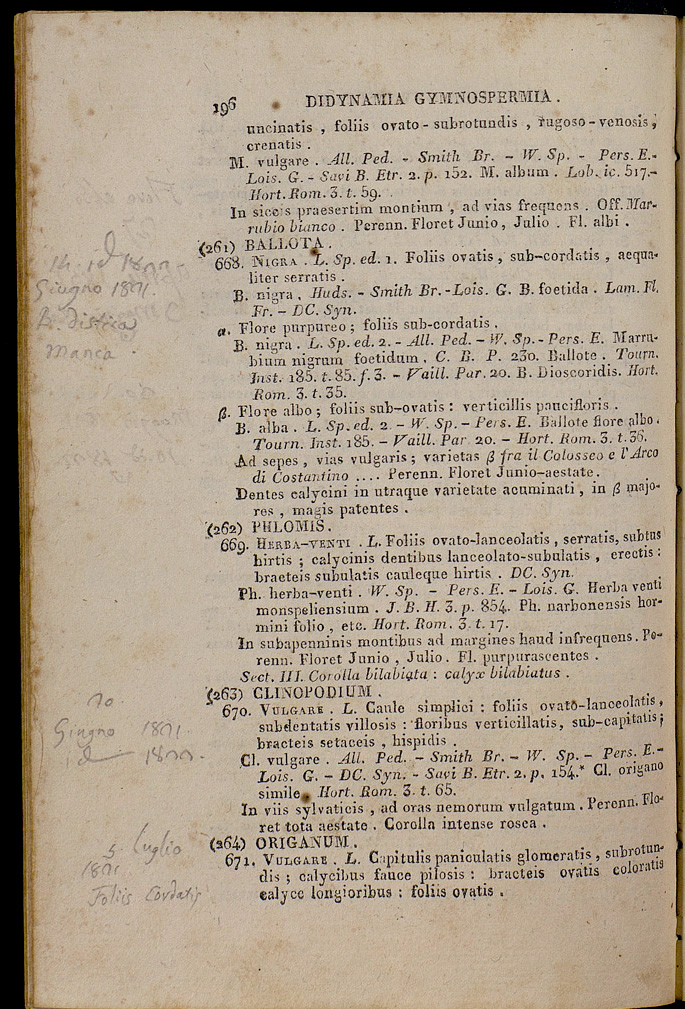 196 DIDYNAMIA GYMNOSPERMIA .
uncinatis , foliis ovato - subrotundis , rugoso - venosis ,
crenatis .
M. vulgare . All. Ped. - Smith Br. - W. Sp. - Pers. E. -
Lois. G. - Savi B. Etr. 2. p. 152. M. album . Lob. ic. 517. -
Hort. Rom. 3. t. 59.
In siccis praesertim montium , ad vias frequens . Off. Mar-
rubio bianco . Perenn. Floret Junio , Julio . Fl. albi .
(261) BALLOTA .
668. NIGRA . L. Sp. ed. 1. Foliis ovatis , sub-cordatis , aequa-
liter serratis .
B. nigra . Huds. - Smith Br. - Lois. G. B. foetida . Lam. Fl.
Fr. - DC. Syn.
α. Flore purpureo ; foliis sub-cordatis .
B. nigra . L. Sp. ed. 2. - All. Ped. - W. Sp. - Pers. E. Marru-
bium nigrum foetidum . C. B. P. 230. Ballote . Tourn.
Inst. 185. t. 85. f. 3. - Vaill. Par. 20. B. Dioscoridis. Hort.
Rom. 3. t. 35.
β. Flore albo ; foliis sub-ovatis : verticillis paucifloris .
B. alba . L. Sp. ed. 2 - W. Sp. - Pers. E. Ballote flore albo .
Tourn. Inst. 185. - Vaill. Par 20. - Hort. Rom. 3. t. 36.
Ad sepes , vias vulgaris ; varietas β fra il Colosseo e l'Arco
di Costantino .... Perenn. Floret Junio-aestate .
Dentes calycini in utraque varietate acuminati , in β majo-
res , magis patentes .
(262) PHLOMIS .
669. HERBA-VENTI . L. Foliis ovato-lanceolatis , serratis, subtus
hirtis ; calycinis dentibus lanceolato-subulatis , erectis :
bracteis subulatis cauleque hirtis . DC. Syn.
Ph. herba-venti . W. Sp. - Pers. E. - Lois. G. Herba venti
monspeliensium . J. B. H. 3. p. 854. Ph. narbonensis hor-
mini folio , etc. Hort. Rom. 3. t. 17.
In subapenninis montibus ad margines haud infrequens . Pe-
renn. Floret Junio , Julio . Fl. purpurascentes .
Sect. III. Corolla bilabiata : calyx bilabiatus .
(263) CLINOPODIUM .
670. VULGARE . L. Caule simplici : foliis ovato-lanceolatis ,
subdentatis villosis : floribus verticillatis, sub-capitatis ;
bracteis setaceis , hispidis .
Cl. vulgare . All. Ped. - Smith Br. - W. Sp. - Pers. E. -
Lois. G. - DC. Syn. - Savi B. Etr. 2. p. 154.* Cl. origano
simile . Hort. Rom. 3. t. 65.
In viis sylvaticis , ad oras nemorum vulgatum . Perenn. Flo-
ret tota aestate . Corolla intense rosea .
(264) ORIGANUM .
671. VULGARE . L. Capitulis paniculatis glomeratis , subrotun-
dis ; calycibus fauce pilosis : bracteis ovatis coloratis
calyce longioribus : foliis ovatis .
Giugno
B.
manca .
Giugno
5. Luglio
Foliis Cordatis